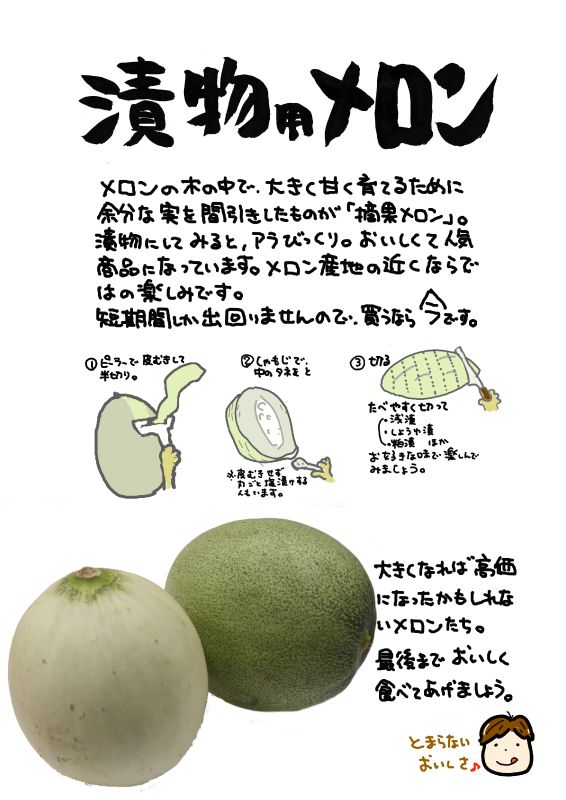 漬物用メロン
メロンの木の中で、大きく甘く育てるために
余分な実を間引きしたものが「摘果メロン」。
漬物にしてみると、アラびっくり。おいしくて人気
商品になっています。メロン産地の近くならで
はの楽しみです。
短期間しか出回りませんので、買うなら今です。
①ピーラーで皮むきして
半切り。
②しゃもじで、
中のタネをと
※皮むきせず
丸ごと塩漬けする
人もいます。
③切る
たべやすく切って
・浅漬
・しょうゆ漬
・粕漬 ほか
お好きな味で楽しんで
みましょう。
大きくなれば高価
になったかもしれな
いメロンたち。
最後までおいしく
食べてあげましょう。
とまらない
おいしさ♪